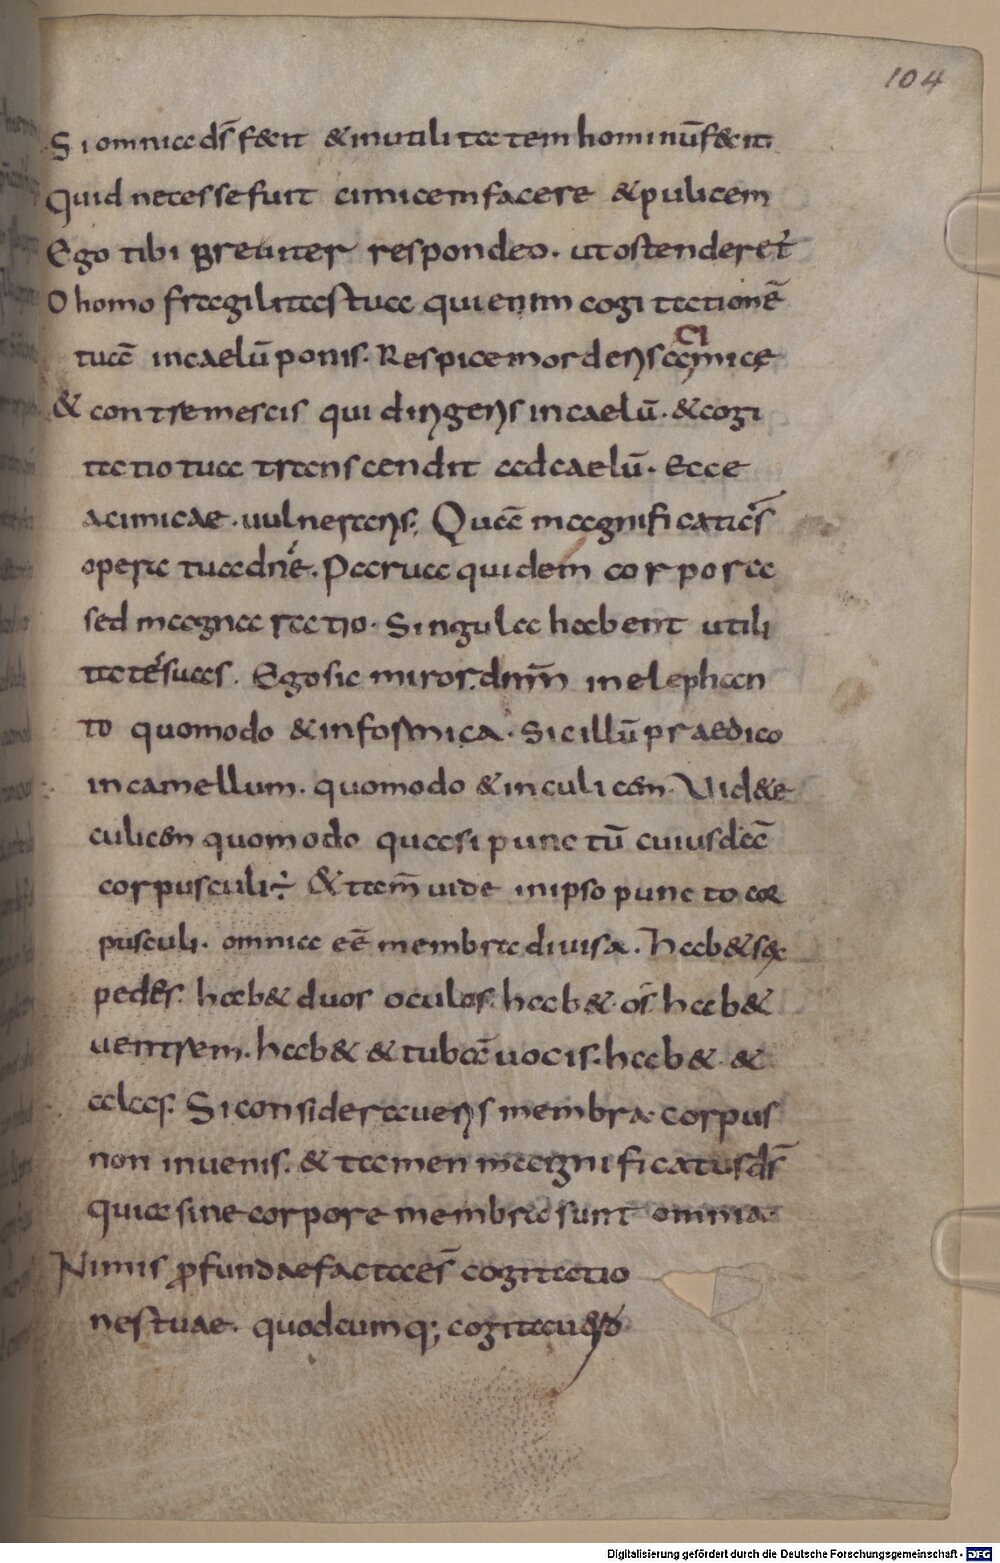 104
Si omnia ds̄ fecit & in utilitatem hominū fecit
Quid necesse fuit cimicem facere & pulicem
Ego tibi breuiter respondeo. ut ostenderet
O homo fragilitas tua quienim cogitationē
tuā in caelū ponis. Respice morderis a cimice
& contremescis qui dirigeris in caelū. & cogi
tatio tua transcendit ad caelū. Ecce
a cimicae. uulneraris. Quā magnificatās̄
opera tua dnē. Parua quidem corpora
sed magna ratio. Singula habent utili
tatē suas. Ego sic miror dnm̄ in elephan
to quomodo & in formica. Sic illū praedico
in camellum. quomodo & in culicem. Vid&e
culicem quomodo quasi punctū cuiusdā
corpusculi÷ & tam̄ uide in ipso puncto cor
pusculi. omnia eē membra diuisa. hab& sex
pedes. hab& duos oculos. hab& os. hab&
uentrem. hab& & tubā uocis. hab& &
alas. Si considera ueris membra corpus
non inuenis. & tamen magnificatus ds̄
quia sine corpore membra sunt omnia
Nimis p̄fundae factaes̄ cogitatio
nes tuae. quodcumq; cogitauero
Digitalisierung gefördert durch die Deutsche Forschungsgemeinschaft - DFG